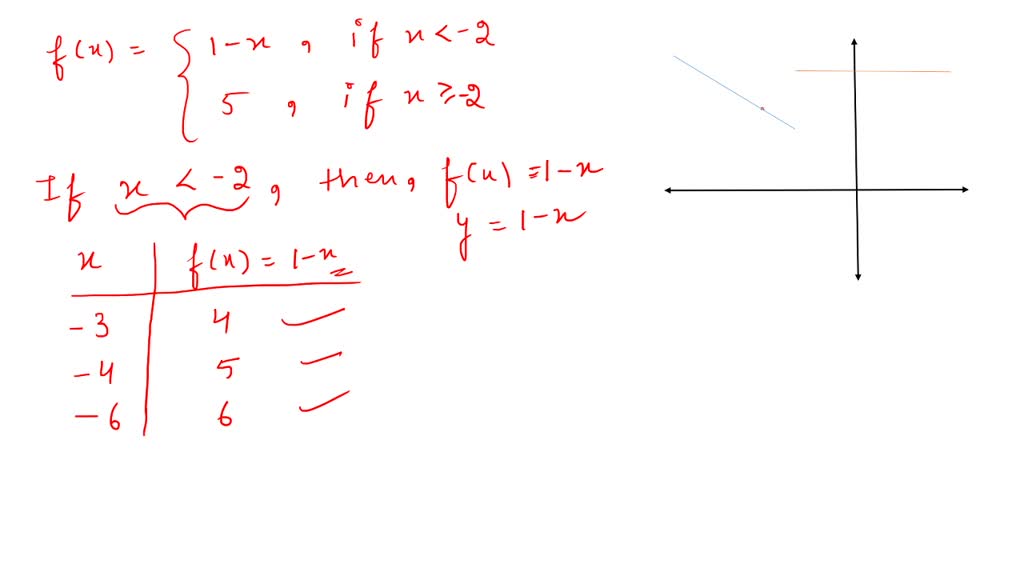 f(x) = { 1-x , if x < -2
5 , if x ≥ -2
If x < -2 , then, f(x) = 1-x
y = 1-x
x | f(x) = 1-x
-3 | 4
-4 | 5
-6 | 6